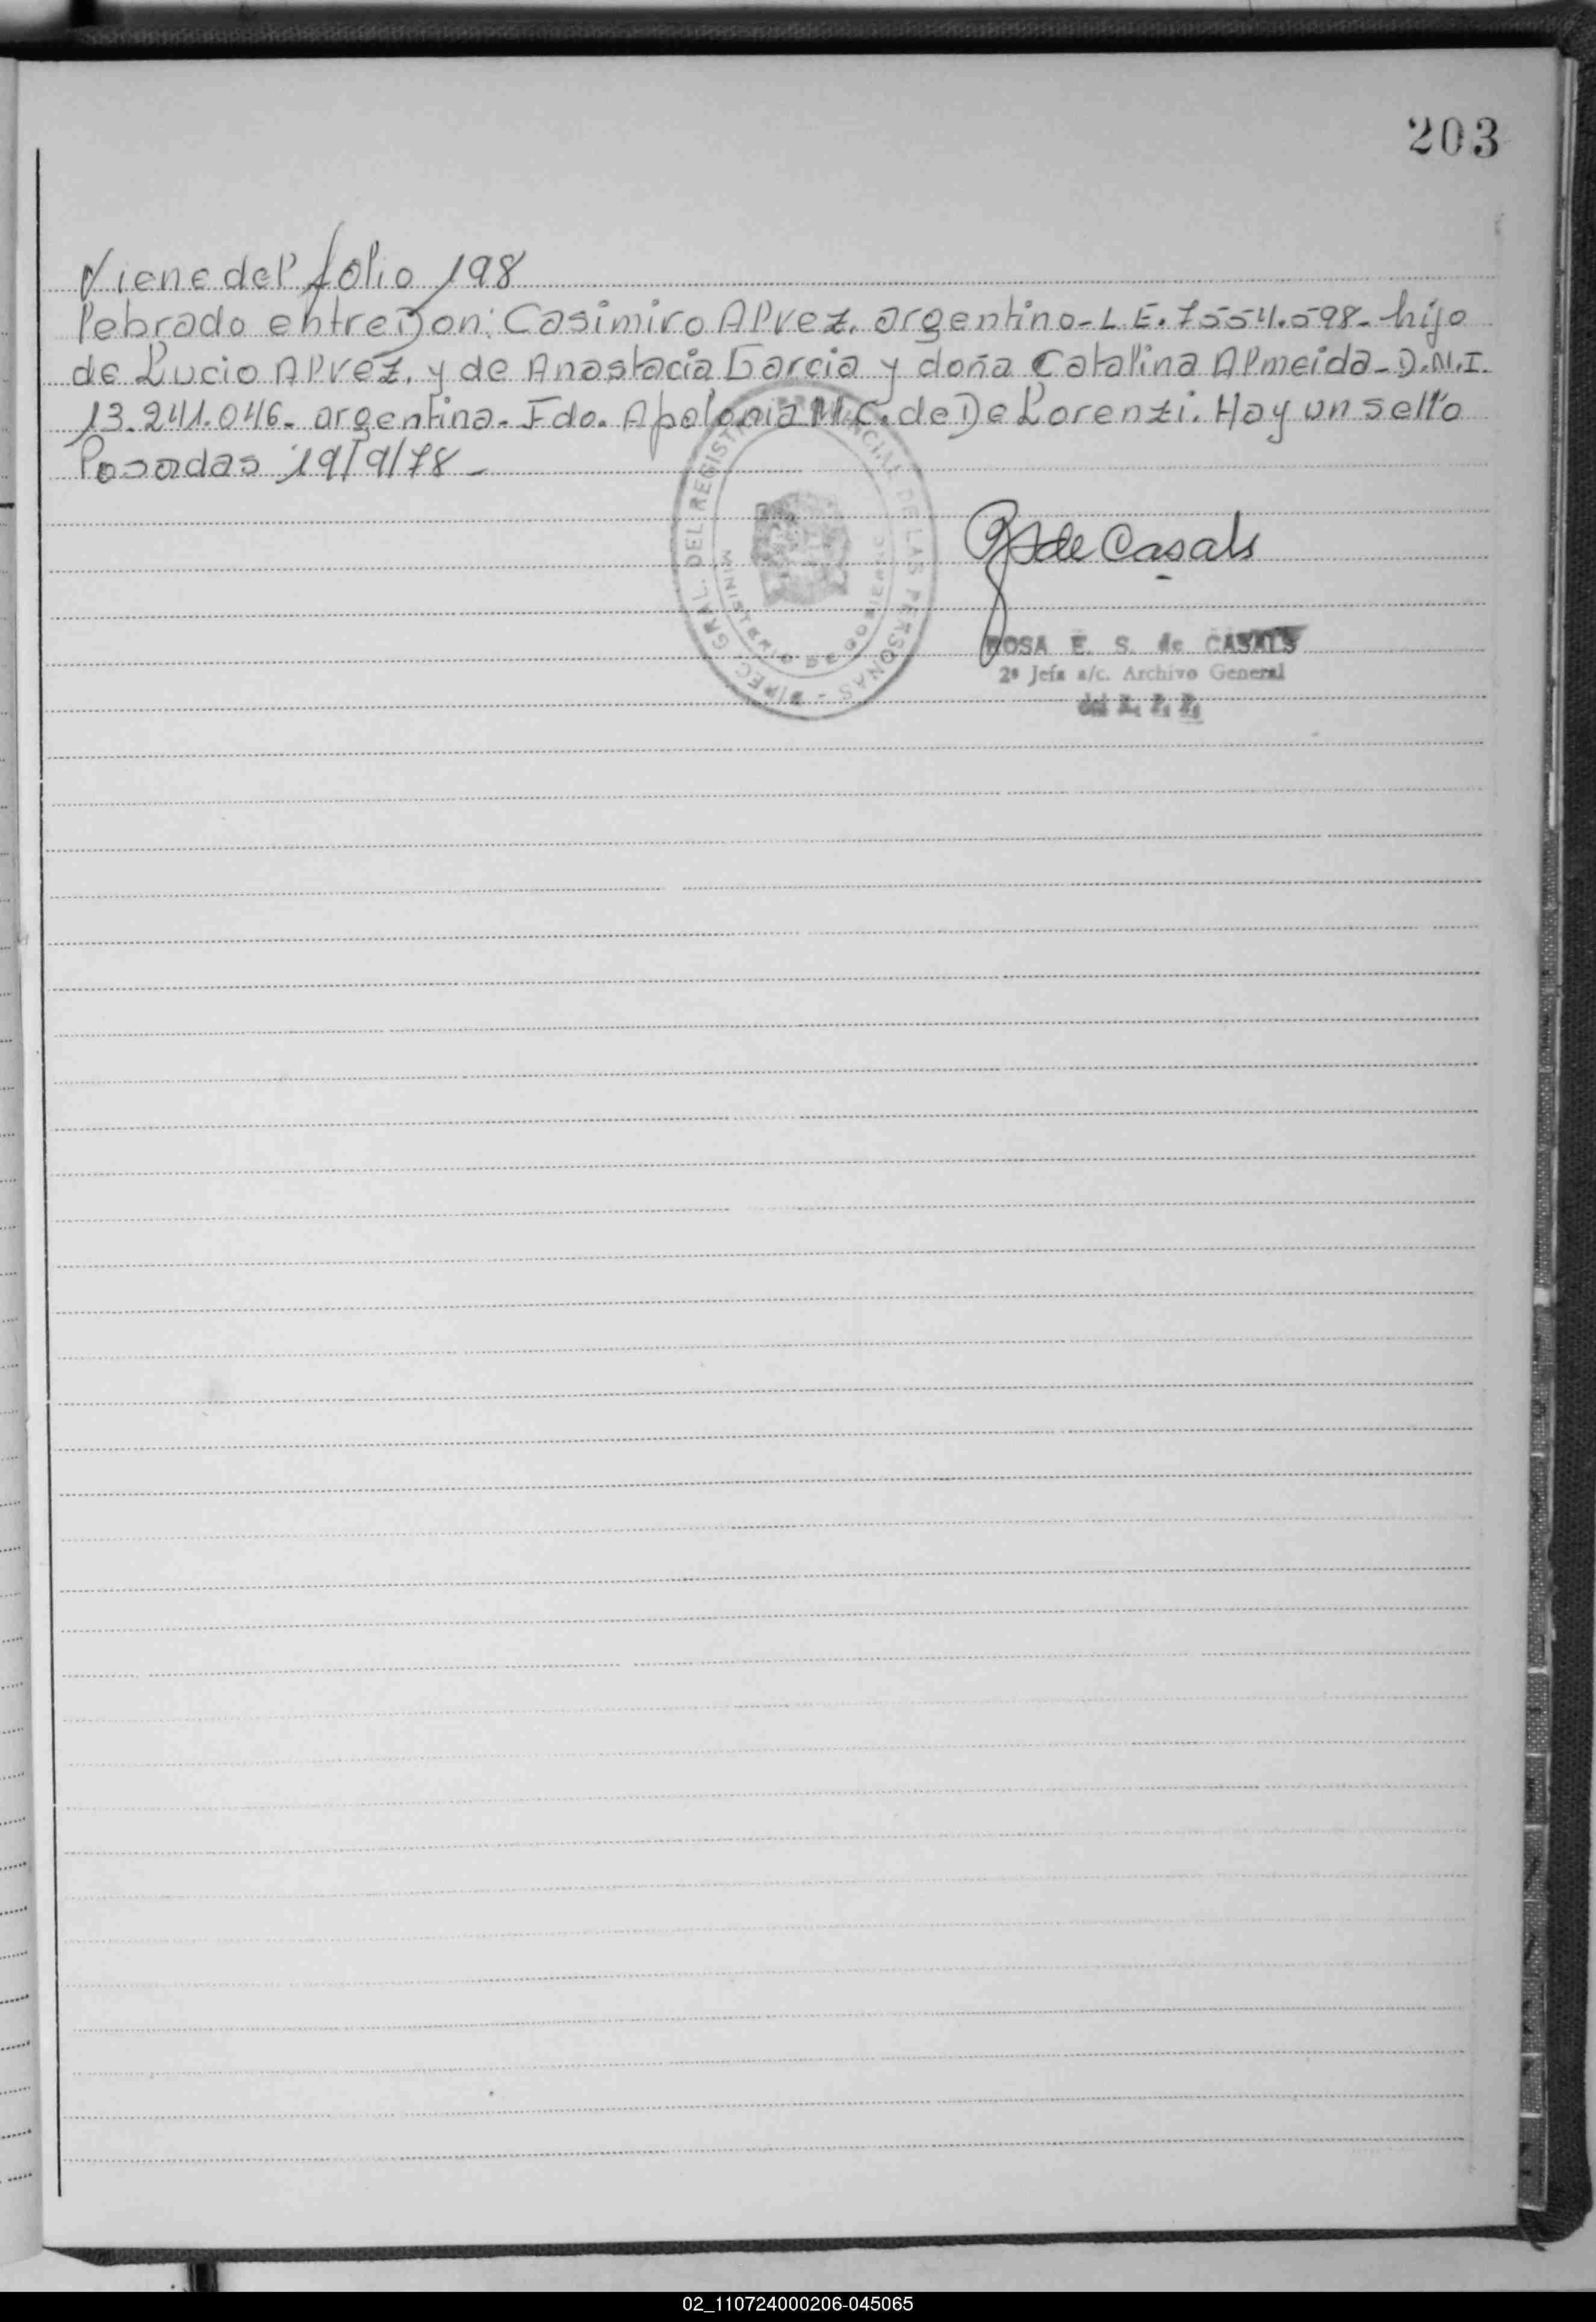 203
Viene del folio 198
lebrado entre Don: Casimiro Alvez. argentino- L.E. 7554.598- hijo
de Lucio Alvez. y de Anastacia Garcia y doña Catalina Almeida- D.N.I.
13.241.046- argentina- Fdo. Apolonia M.C. de De Lorenzi. Hay un sello
Posadas 19/9/78-
DIREC. GRAL. DEL REGISTRO PROVINCIAL DE LAS PERSONAS -
MINISTERIO DE GOBIERNO
de Casals
ROSA E. S. de CASALS
2ª Jefa a/c. Archivo General
del R. P. P.
02_110724000206-045065